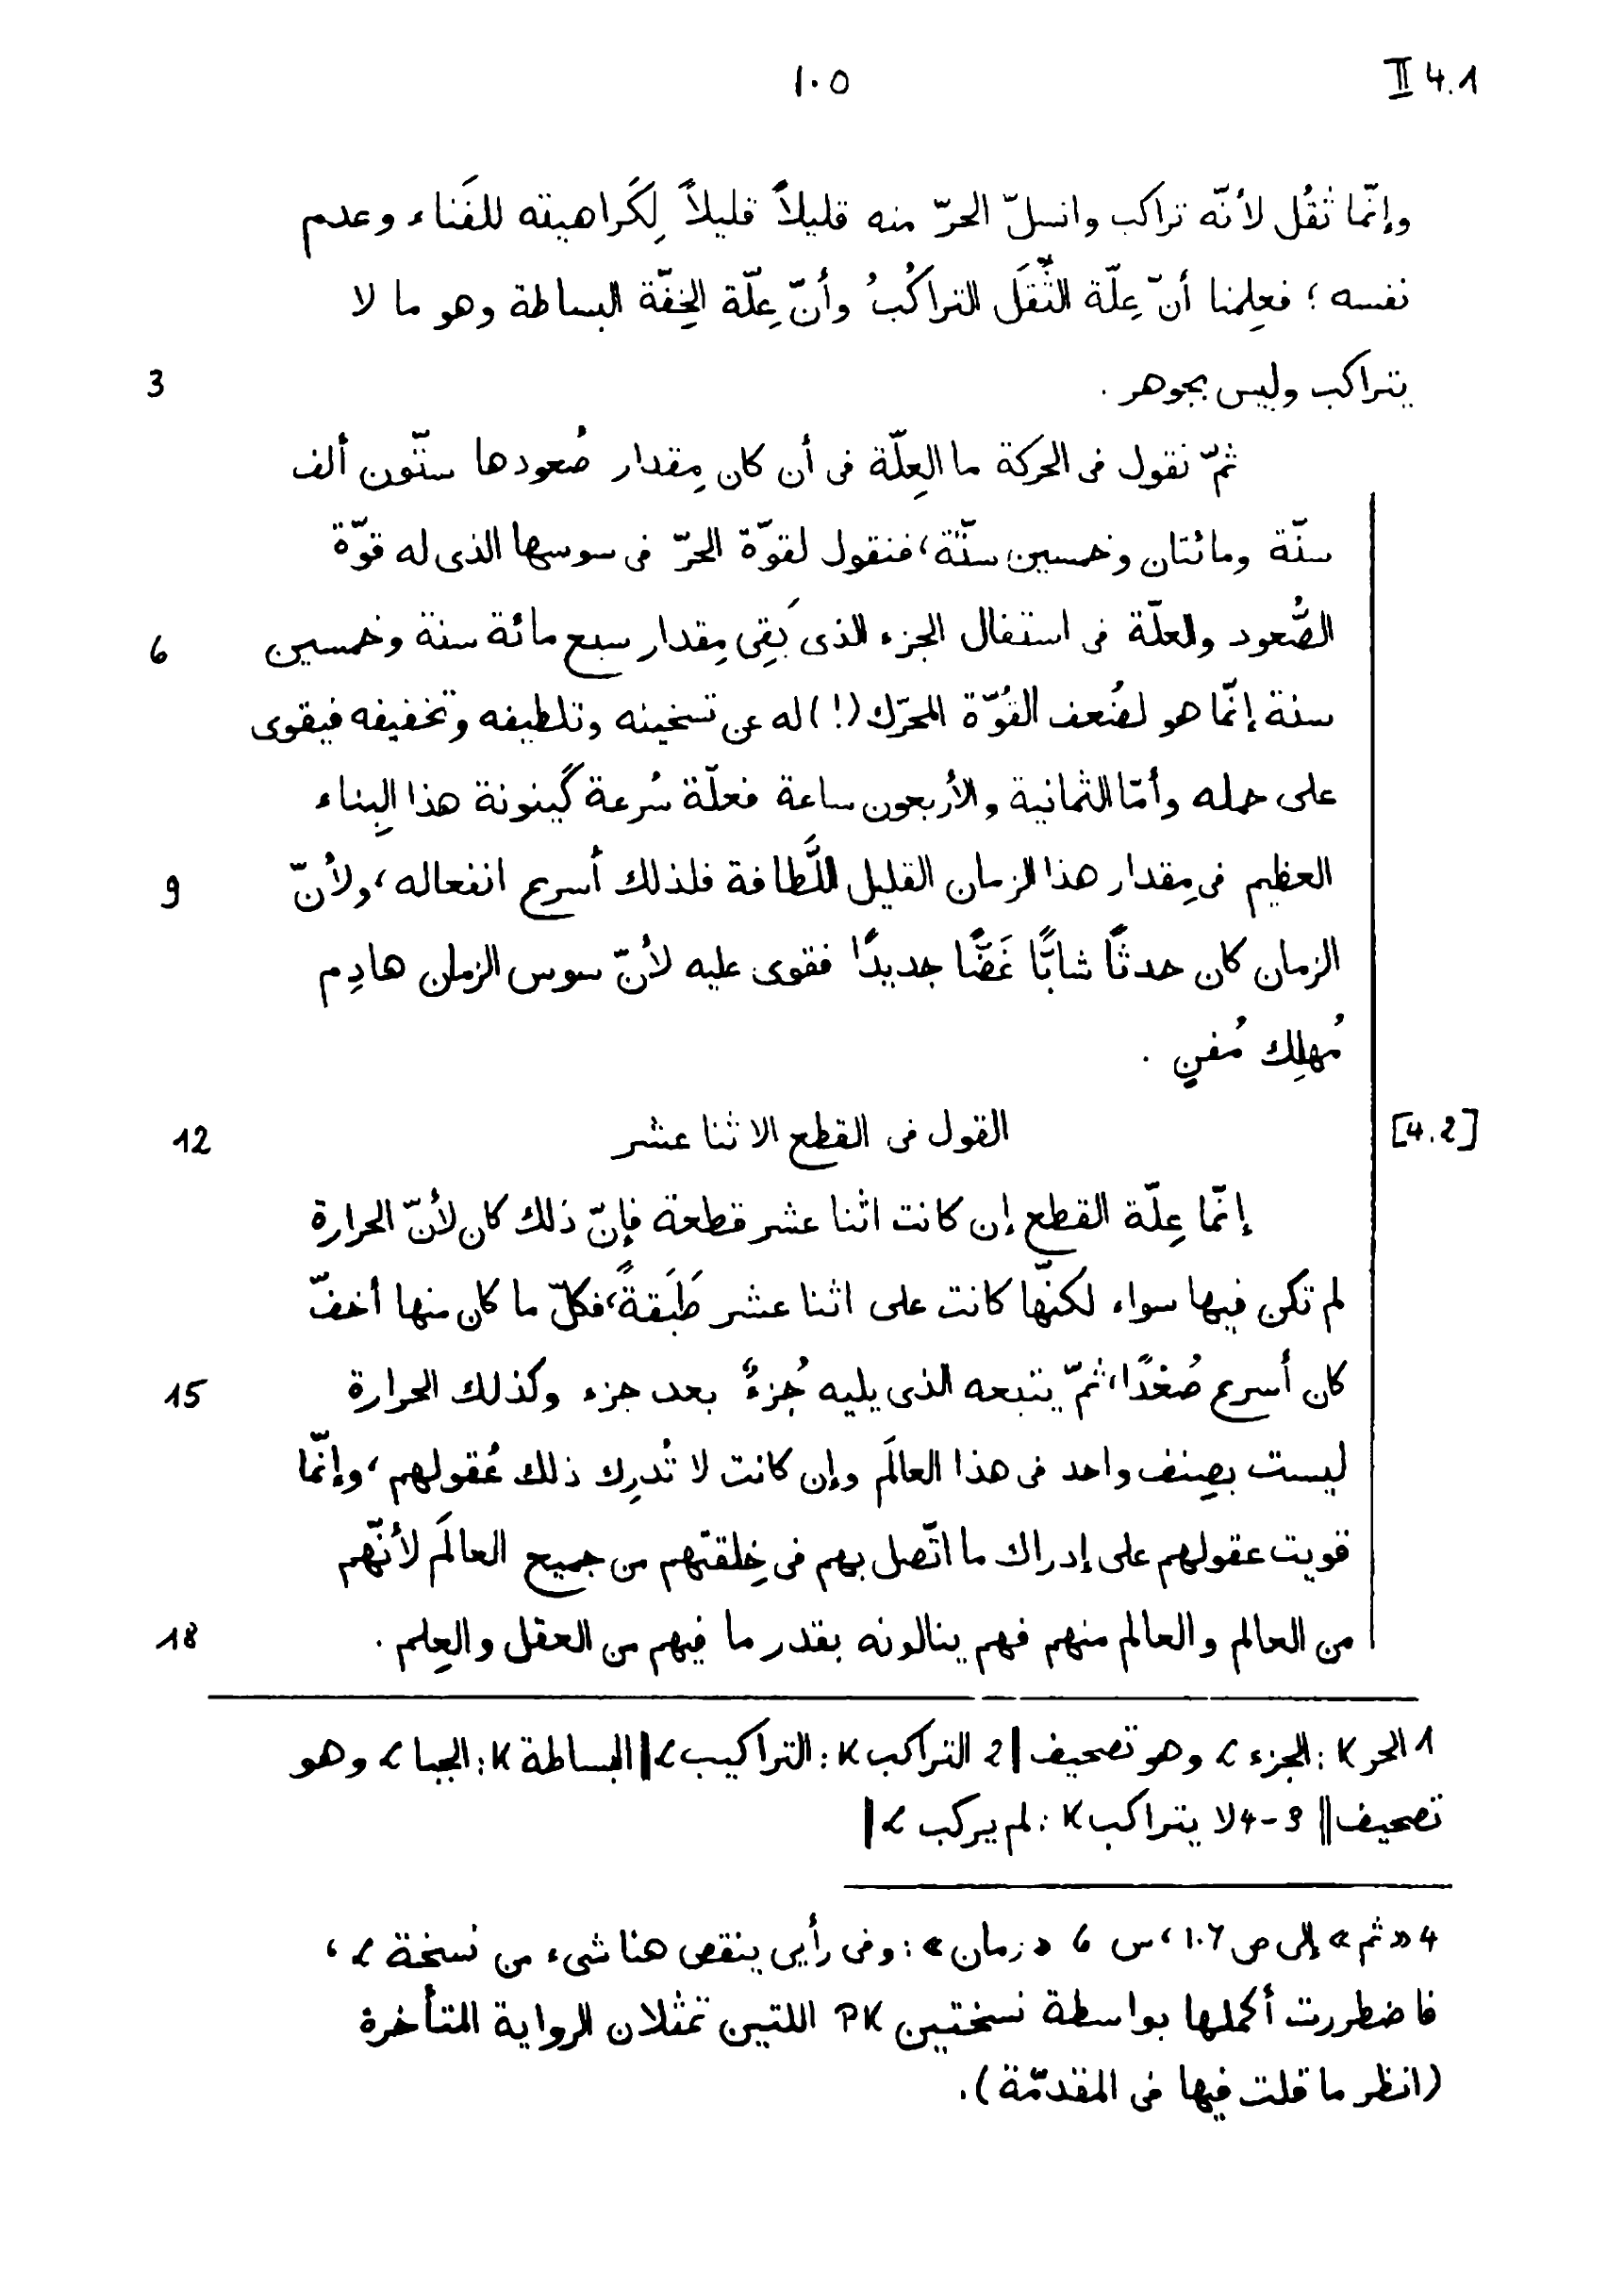 ١٠٥ II 4.1
وإنّما ثقُل لأنّه تراكب وانسلّ الحرّ منه قليلاً قليلاً لِكَراهيته للفَناء وعدم
نفسه؛ فعلِمنا أنّ عِلّة الثِّقَل التراكُبُ وأنّ عِلّة الخِفّة البساطة وهو ما لا
يتراكب وليس بجوهر. 3
ثمّ نقول فى الحركة ما العِلّة فى أن كان مِقدار صُعودها ستّون ألف
سنّة ومائتان وخمسين سنّة، فنقول لقوّة الحرّ فى سوسها الذى له قوّة
الصُّعود والعلّة فى استفال الجزء الذى بَقِى مِقدار سبع مائة سنة وخمسين 6
سنة إنّما هو لضُعف القُوّة المحرّك (!) له عن تسخينه وتلطيفه وتخفيفه فيقوى
على حمله وأمّا الثمانية والأربعون ساعة فعلّة سُرعة كَينونة هذا البِناء
العظيم فى مِقدار هذا الزمان القليل اللَّطافة فلذلك أسرع انفعاله، ولأنّ 9
الزمان كان حدثًا شابًّا غَضًّا جديدًا فقوى عليه لأنّ سوس الزمان هادِم
مُهلِك مُفنٍ.
[4.2] القول فى القطع الاثنا عشر 12
إنّما عِلّة القطع إن كانت اثنا عشر قطعة فإنّ ذلك كان لأنّ الحرارة
لم تكن فيها سواء لكنّها كانت على اثنا عشر طَبَقةً، فكلّ ما كان منها أخفّ
كان أسرع صُغدًا، ثمّ يتبعه الذى يليه جُزءٌ بعد جزء وكذلك الحرارة 15
ليست بصِنف واحد فى هذا العالَم وإن كانت لا تُدرِك ذلك عُقولهم، وإنّما
قويت عقولهم على إدراك ما اتّصل بهم فى خِلقتهم من جميع العالَم لأنّهم
من العالم والعالم منهم فهم ينالونه بقدر ما فيهم من العقل والعِلم. 18
1 الحر K: الجزء L وهو تصحيف || 2 التراكب K: التراكيب L || البساطة K: الجبا L وهو
تصحيف || 3-4 لا يتراكب K: لم يركب L ||
4 «ثم» إلى ص ١٠٧، س 6 «زمان»: وفى رأيى ينقص هنا شىء من نسخة L،
فاضطررت أكملها بواسطة نسختين PK اللتين تمثلان الرواية المتأخرة
(انظر ما قلت فيها فى المقدمّة).